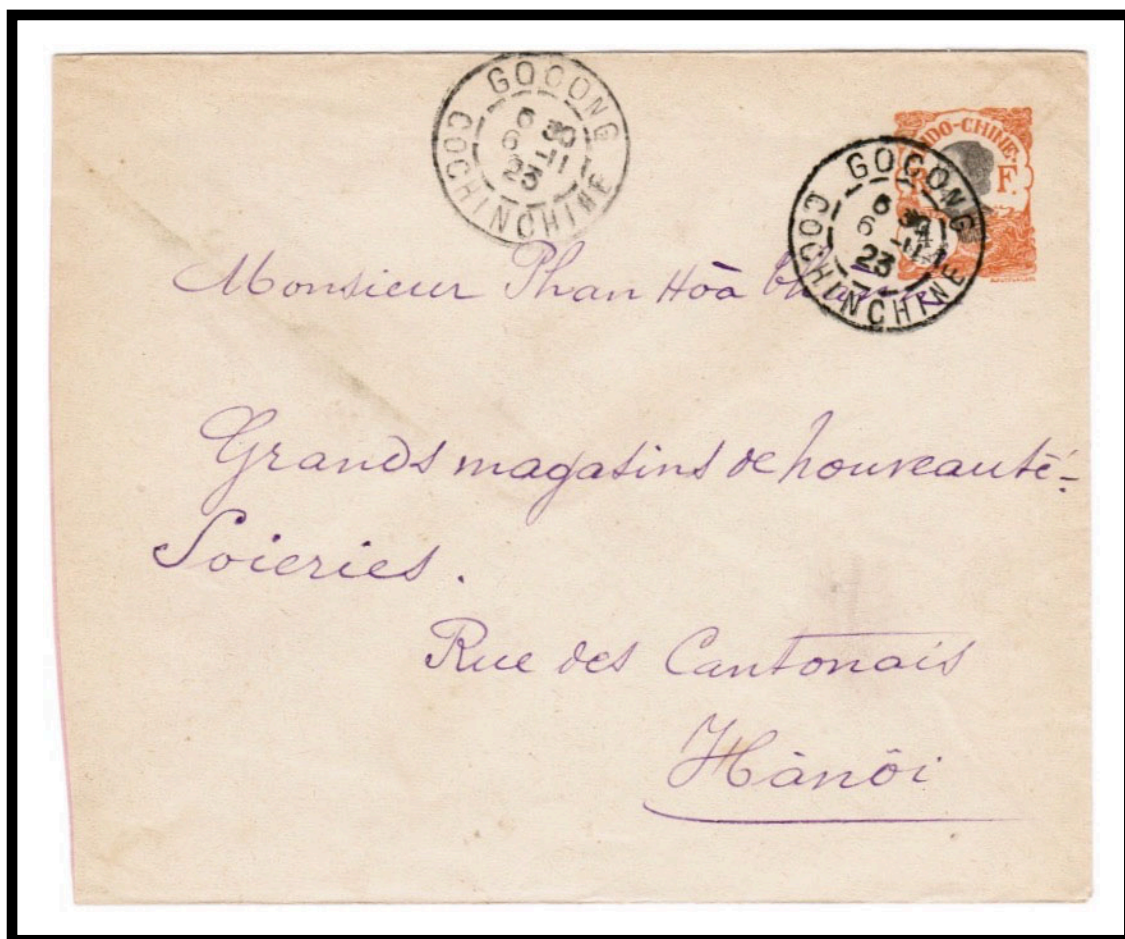 GOCONG
6 30
6 -11
23
COCHINCHINE
INDO-CHINE.
R F.
4
GOCONG
6 30
6 -11
23
COCHINCHINE
Monsieur Phan Hòa
Grands magasins de nouveauté-
Soieries.
Rue des Cantonais
Hànôi